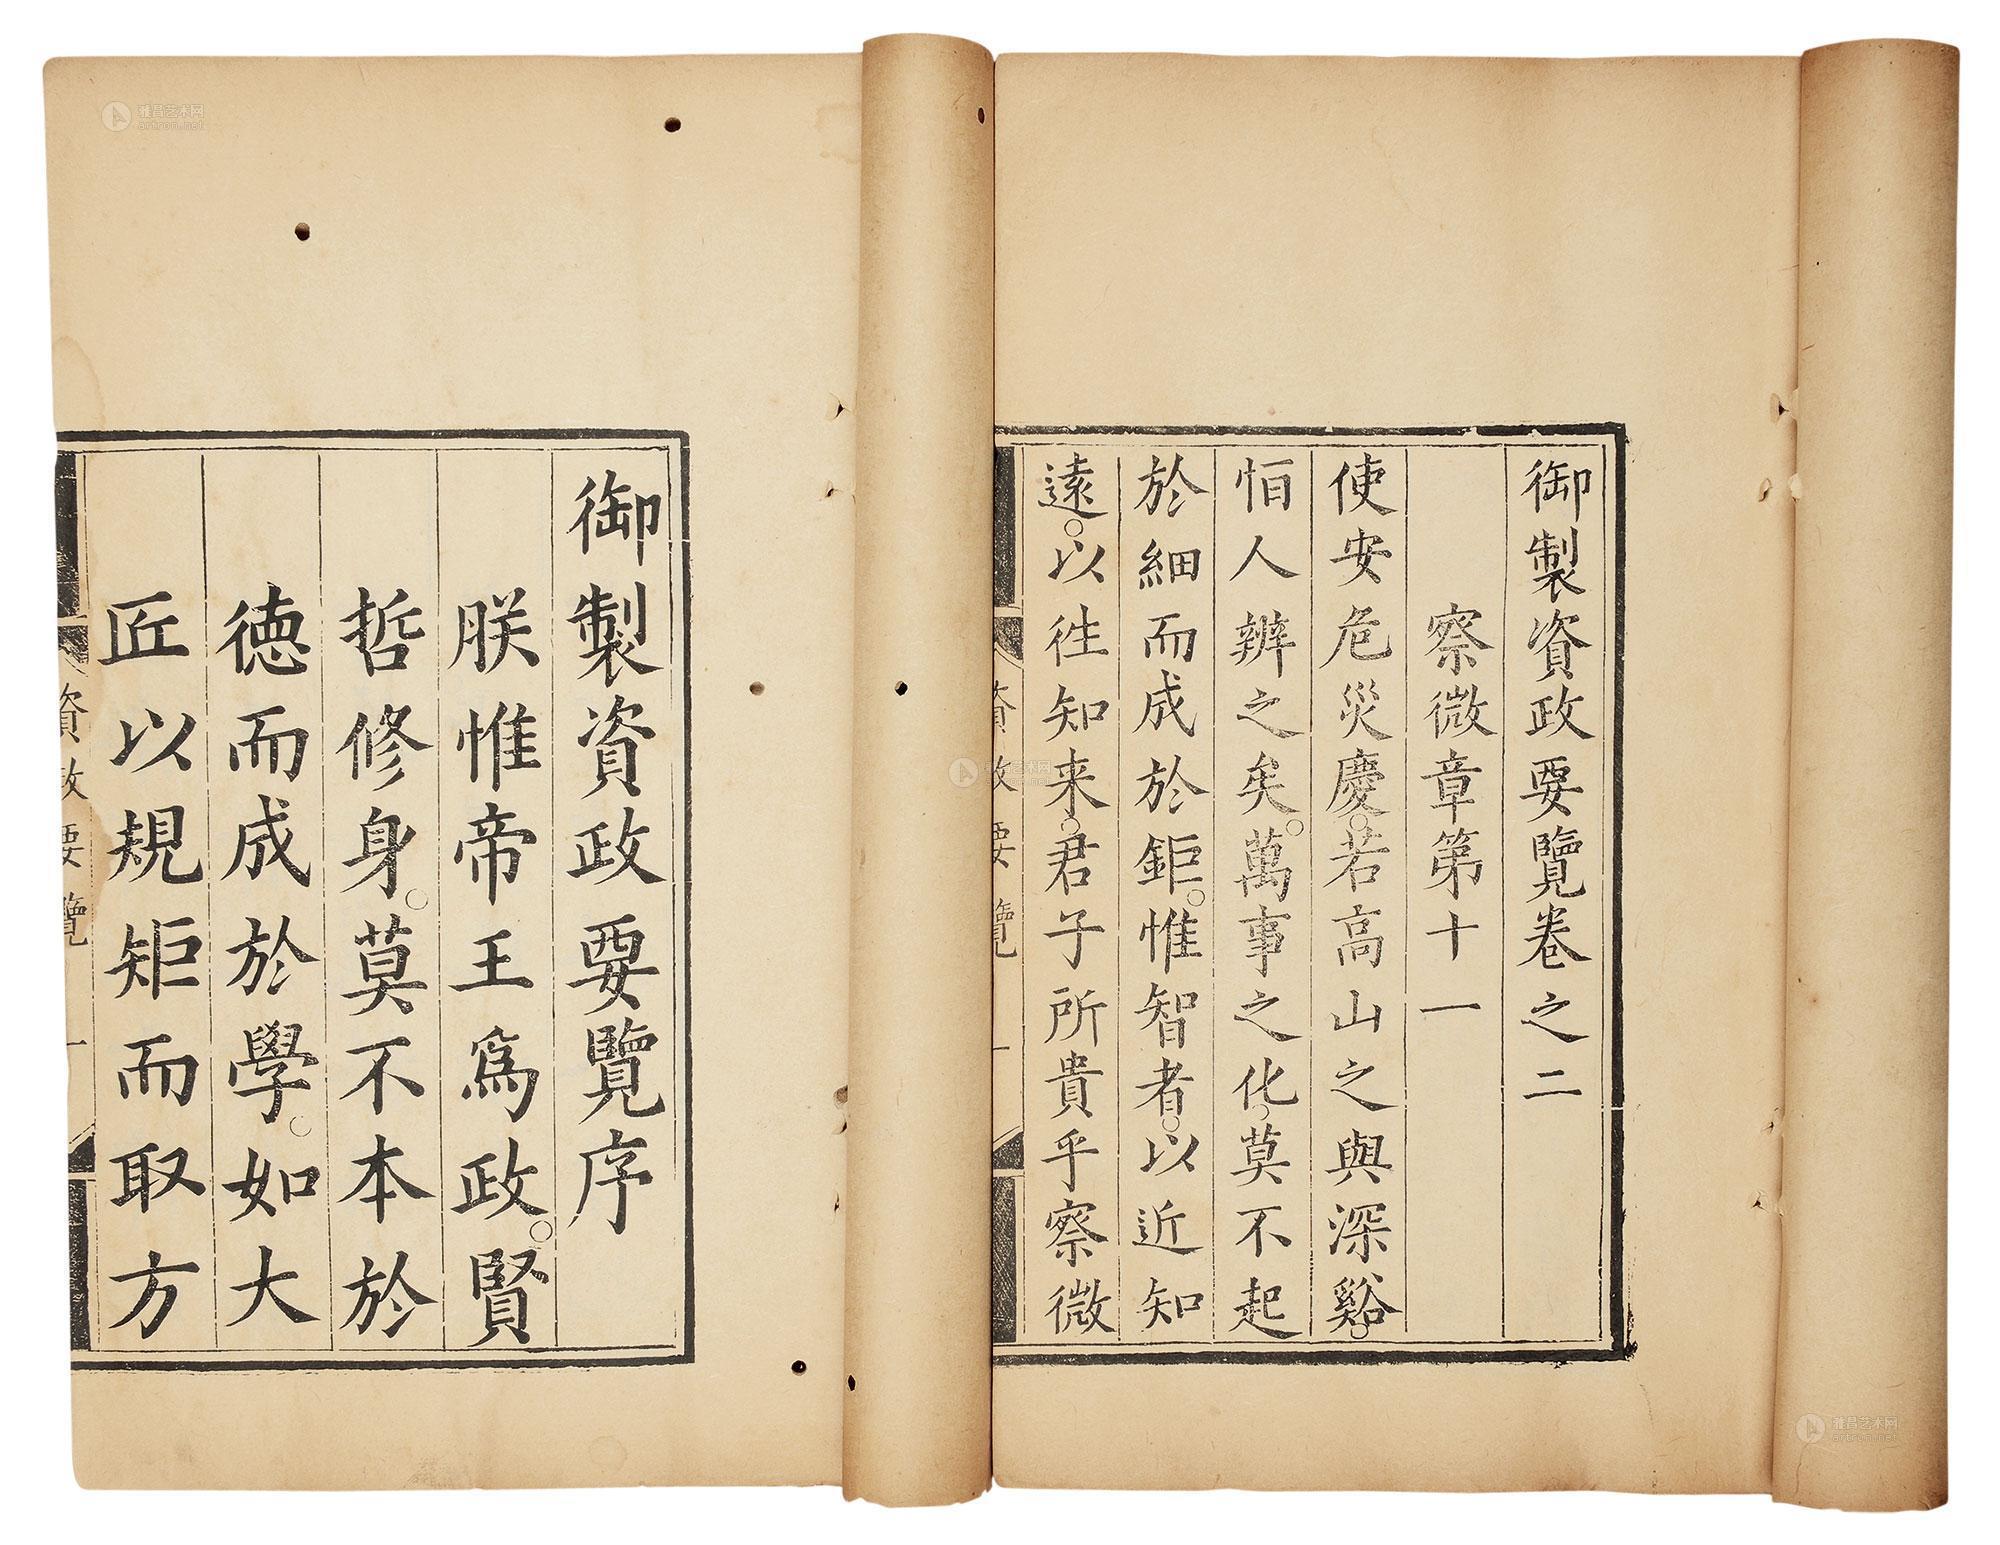 御製資政要覽卷之二
察微章第十一
使安危災慶。若高山之與深谿。
佰人辨之矣。萬事之化。莫不起
於細而成於鉅。惟智者。以近知
遠。以徃知来。君子所貴乎察微
資政要覽
一
御製資政要覽序
朕惟帝王爲政。賢
哲修身。莫不本於
德而成於學。如大
匠以規矩而取方
資政要覽
一
雅昌艺术网
artron.net
雅昌艺术网
artron.net
雅昌艺术网
artron.net